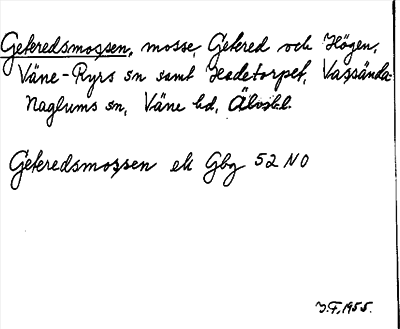 Gekeredsmossen, mosse, Gekered och Högen,
Väne-Ryrs sn samt Hedetorpet, Vassända-
Naglums sn, Väne hd, Älvsb.l.
Gekeredsmossen ek Gbg 52 NO
J.F. 1955.